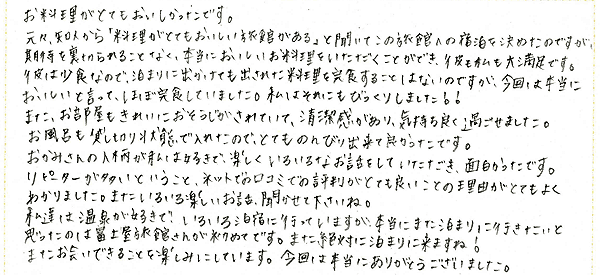 お料理がとてもおいしかったです。
元々、知人から「料理がとてもおいしい旅館がある」と聞いてこの旅館への宿泊を決めたのですが、
期待を裏切られることなく、本当においしいお料理をいただくことができ、彼も私も大満足です。
彼は少食なので、泊まりに出かけても出された料理を完食することはないのですが、今回は本当に
おいしいと言って、ほぼ完食していました。私はそれにもびっくりしました!!
また、お部屋もきれいにおそうじがされていて、清潔感があり、気持ち良く過ごせました。
お風呂も貸し切り状態で入れたので、とてものんびり出来て良かったです。
おかみさんの人柄が私は好きで、楽しくいろいろなお話をしていただき、面白かったです。
リピーターが多いということ、ネットでの口コミでの評判がとても良いことの理由がとてもよく
わかりました。またいろいろ楽しいお話、聞かせて下さいね。
私達は温泉が好きで、いろいろ泊宿に行っていますが、本当にまた泊まりに行きたいと
思ったのは冨士屋旅館さんが初めてです。また絶対に泊まりに来ますね!
またお会いできることを楽しみにしています。今回は本当にありがとうございました。